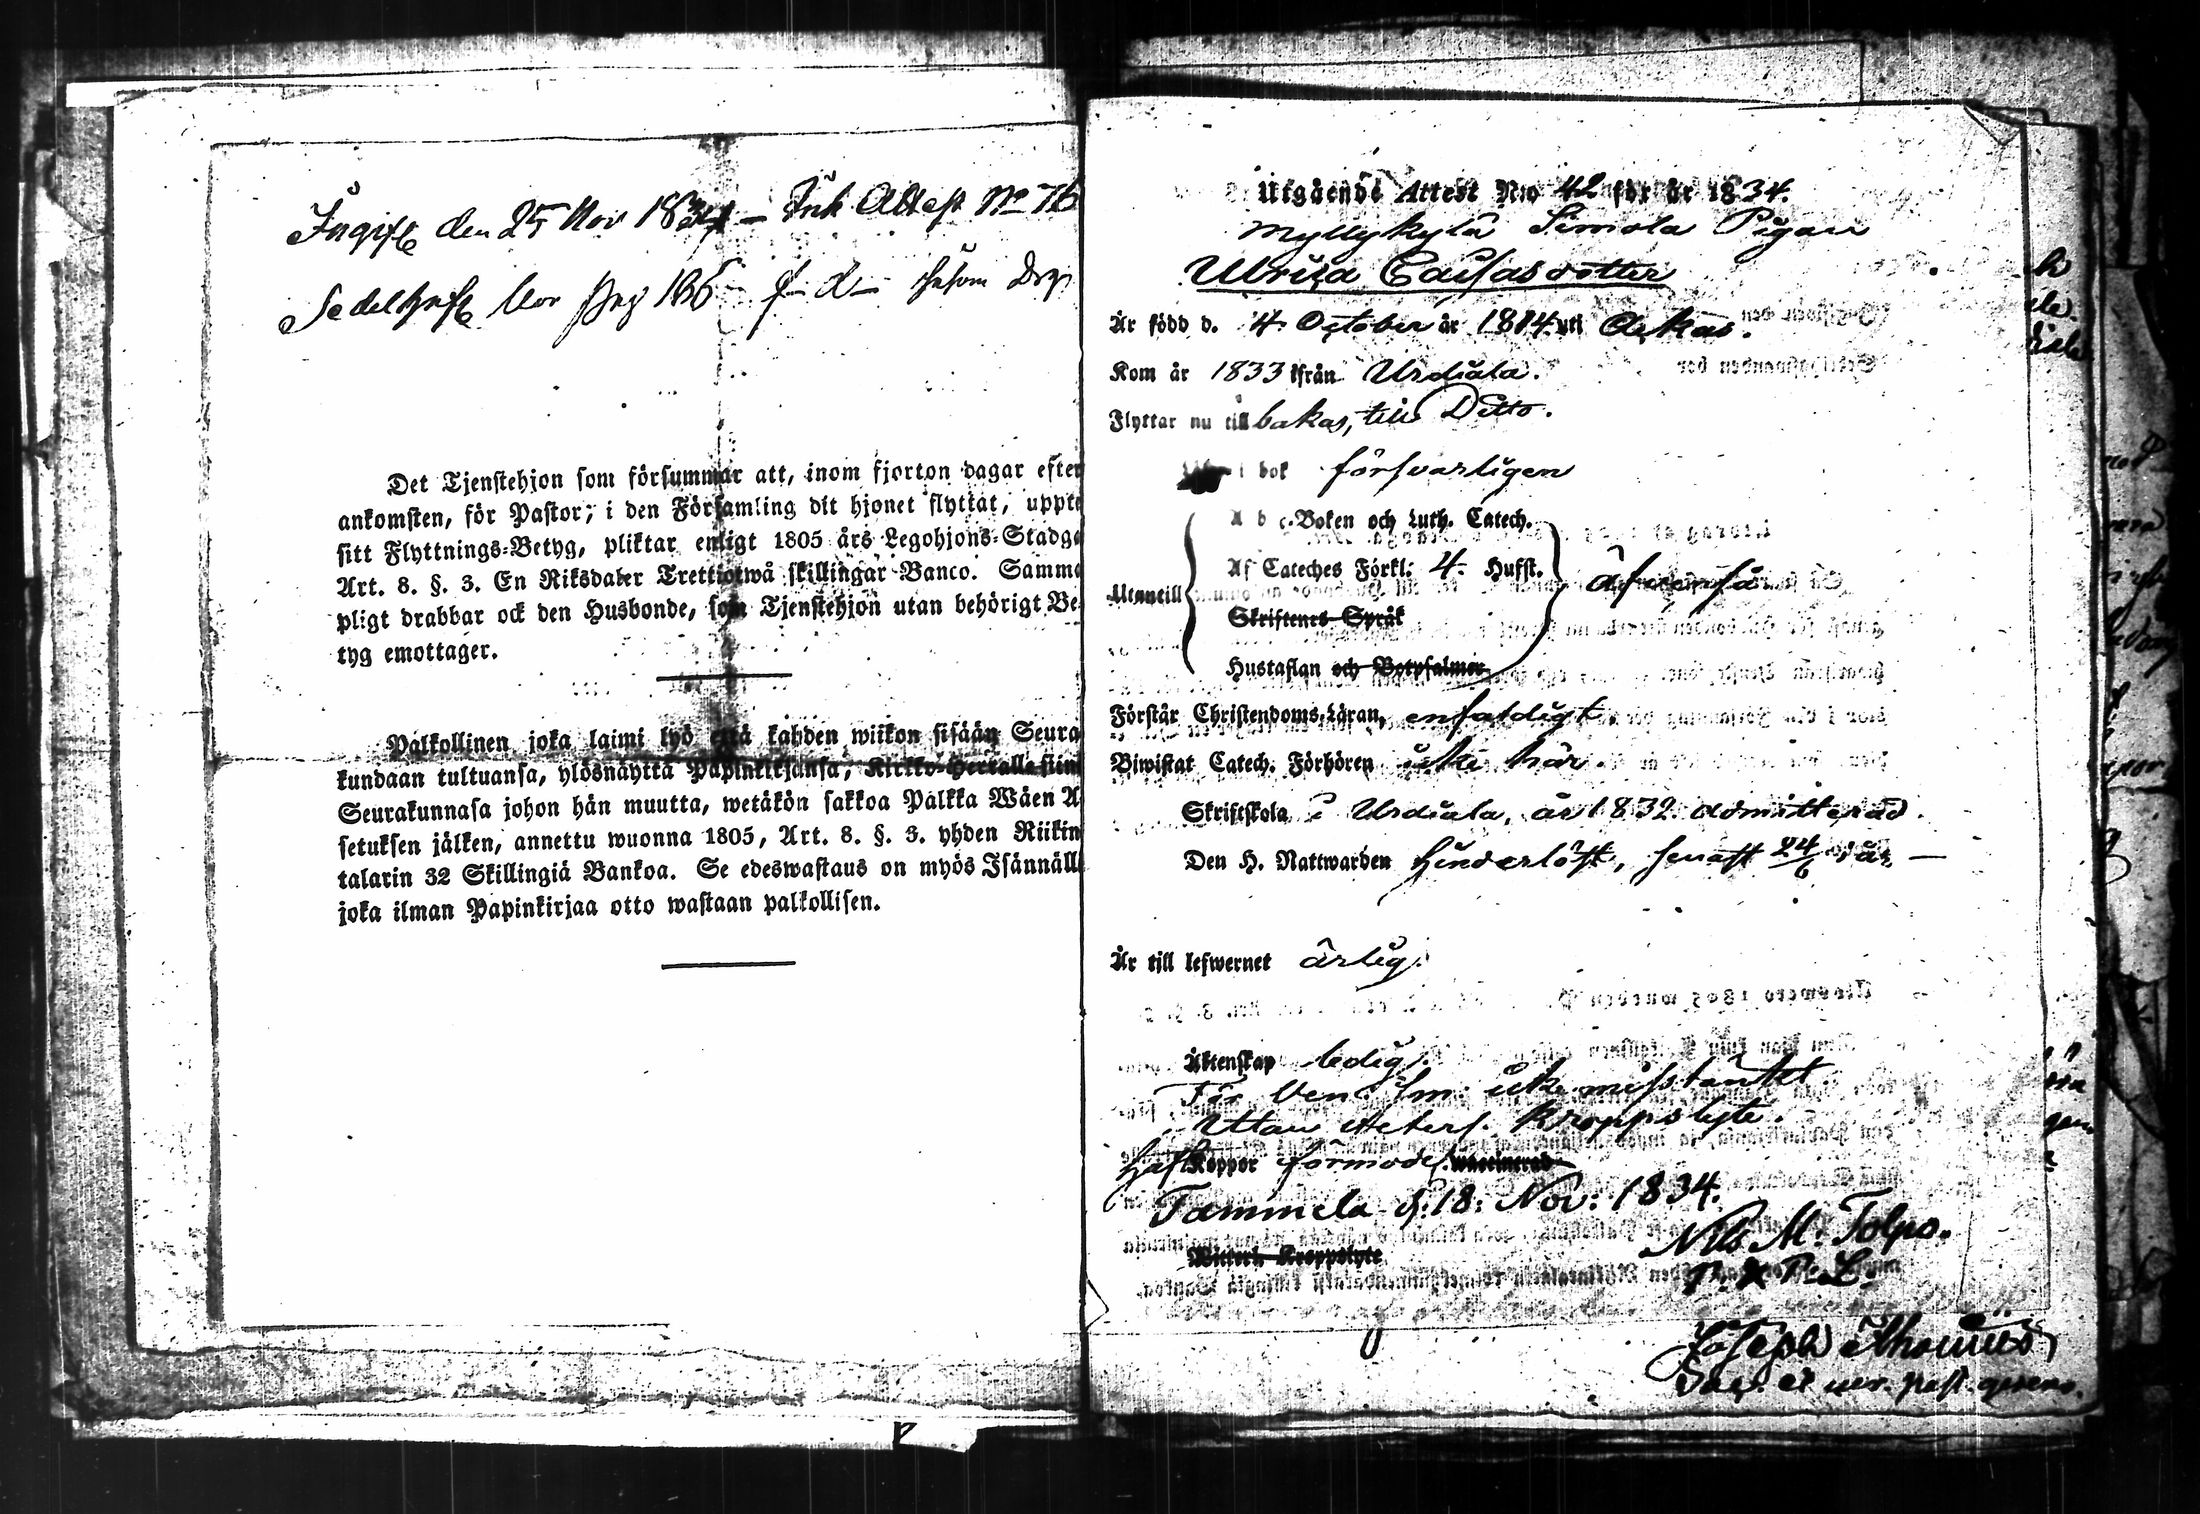 Ingift den 25 Nov 1834 – Ink Attest No 76
Det Tjenstehjon som försummar att, inom fjorton dagar efter
ankomsten, för Pastor, i den Församling dit hjonet flyttat, uppte
sitt Flyttnings-Betyg, pliktar enligt 1805 års Legohjons-Stadga
Art. 8. §. 3. En Riksdaler Trettiotwå skillingar Banco. Samma
pligt drabbar ock den Husbonde, som Tjenstehjon utan behörigt Be-
tyg emottager.
Palkollinen joka laimi lyö että kahden wiikon sisään Seura
kundaan tultuansa, ylösnäyttä Papinkirjansa, Kirkko-Herralle siinä
Seurakunnasa johon hän muutta, wetäkön sakkoa Palkka Wäen A
setuksen jälken, annettu wuonna 1805, Art. 8. §. 3. yhden Riikin
talarin 32 Skillingiä Bankoa. Se edeswastaus on myös Isännällä
joka ilman Papinkirjaa otto wastaan palkollisen.
Utgående Attest N:o 42 för år 1834.
Myllykylä Simola Pigan
Ulrica Caisasdotter
Är född d. 4 October år 1814 uti Ackas.
Kom år 1833 ifrån Urdiala.
Flyttar nu tillbakas, till Ditto.
i bok försvarligen
A b c-Boken och Luth. Catech.
Af Cateches Förkl: 4. Hufst.
Utantill
Skriftenes Språk
Hustaflan och Botpsalmer
Förstår Christendoms Läran, enfaldigt.
Biwistat Catech. Förhören icke här.
Skriftskola i Urdiala, år 1832 admitterad.
Den H. Nattwarden hinderlöst, senast 24/6 d. år. –
Är till lefwernet ärlig.
Äktenskap ledig.
För Ven. Sm. icke misstänkt.
Utan kroppslyte.
Haft Koppor förmodel. waccinerad
Tammela d. 18. Nov: 1834.
Nils M. Tolpo.
Witterl. Kroppslyte
V. P. L.
Joseph